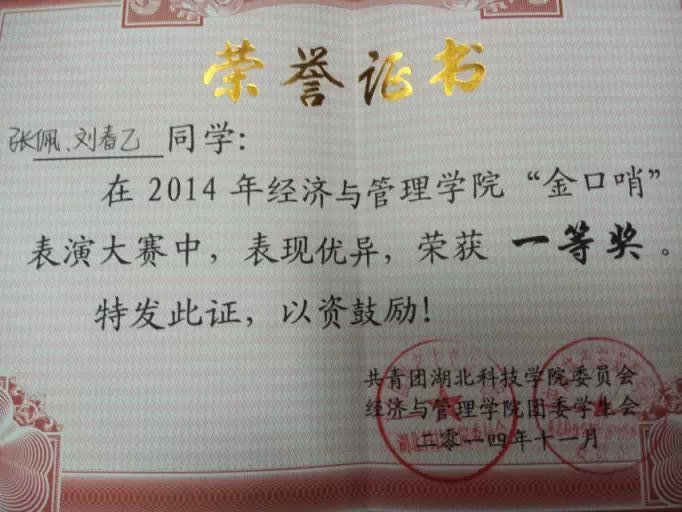 荣誉证书
张佩、刘春乙 同学:
在 2014 年经济与管理学院“金口哨”
表演大赛中，表现优异，荣获 一等奖。
特发此证，以资鼓励!
共青团湖北科技学院委员会
经济与管理学院团委学生会
二零一四年十一月